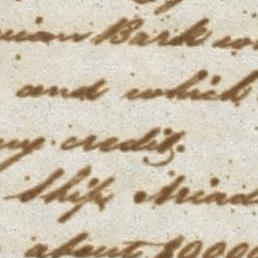 Bark
and which
credit.
Ship Ariad
about $8000